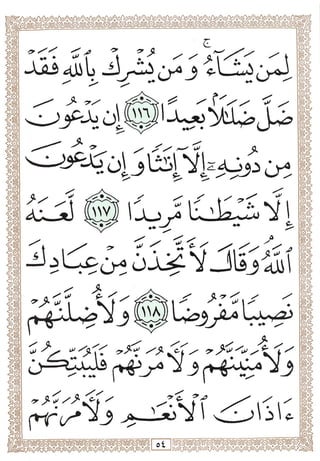 لِمَن يَشَآءُ ۚ وَمَن يُشْرِكْ بِٱللَّهِ فَقَدْ
ضَلَّ ضَلَـٰلًۢا بَعِيدًا ١١٦ إِن يَدْعُونَ
مِن دُونِهِۦٓ إِلَّآ إِنَـٰثًا وَإِن يَدْعُونَ
إِلَّا شَيْطَـٰنًا مَّرِيدًا ١١٧ لَّعَنَهُ
ٱللَّهُ وَقَالَ لَأَتَّخِذَنَّ مِنْ عِبَادِكَ
نَصِيبًا مَّفْرُوضًا ١١٨ وَلَأُضِلَّنَّهُمْ
وَلَأُمَنِّيَنَّهُمْ وَلَـَٔامُرَنَّهُمْ فَلَيُبَتِّكُنَّ
ءَاذَانَ ٱلْأَنْعَـٰمِ وَلَـَٔامُرَنَّهُمْ
٥٤